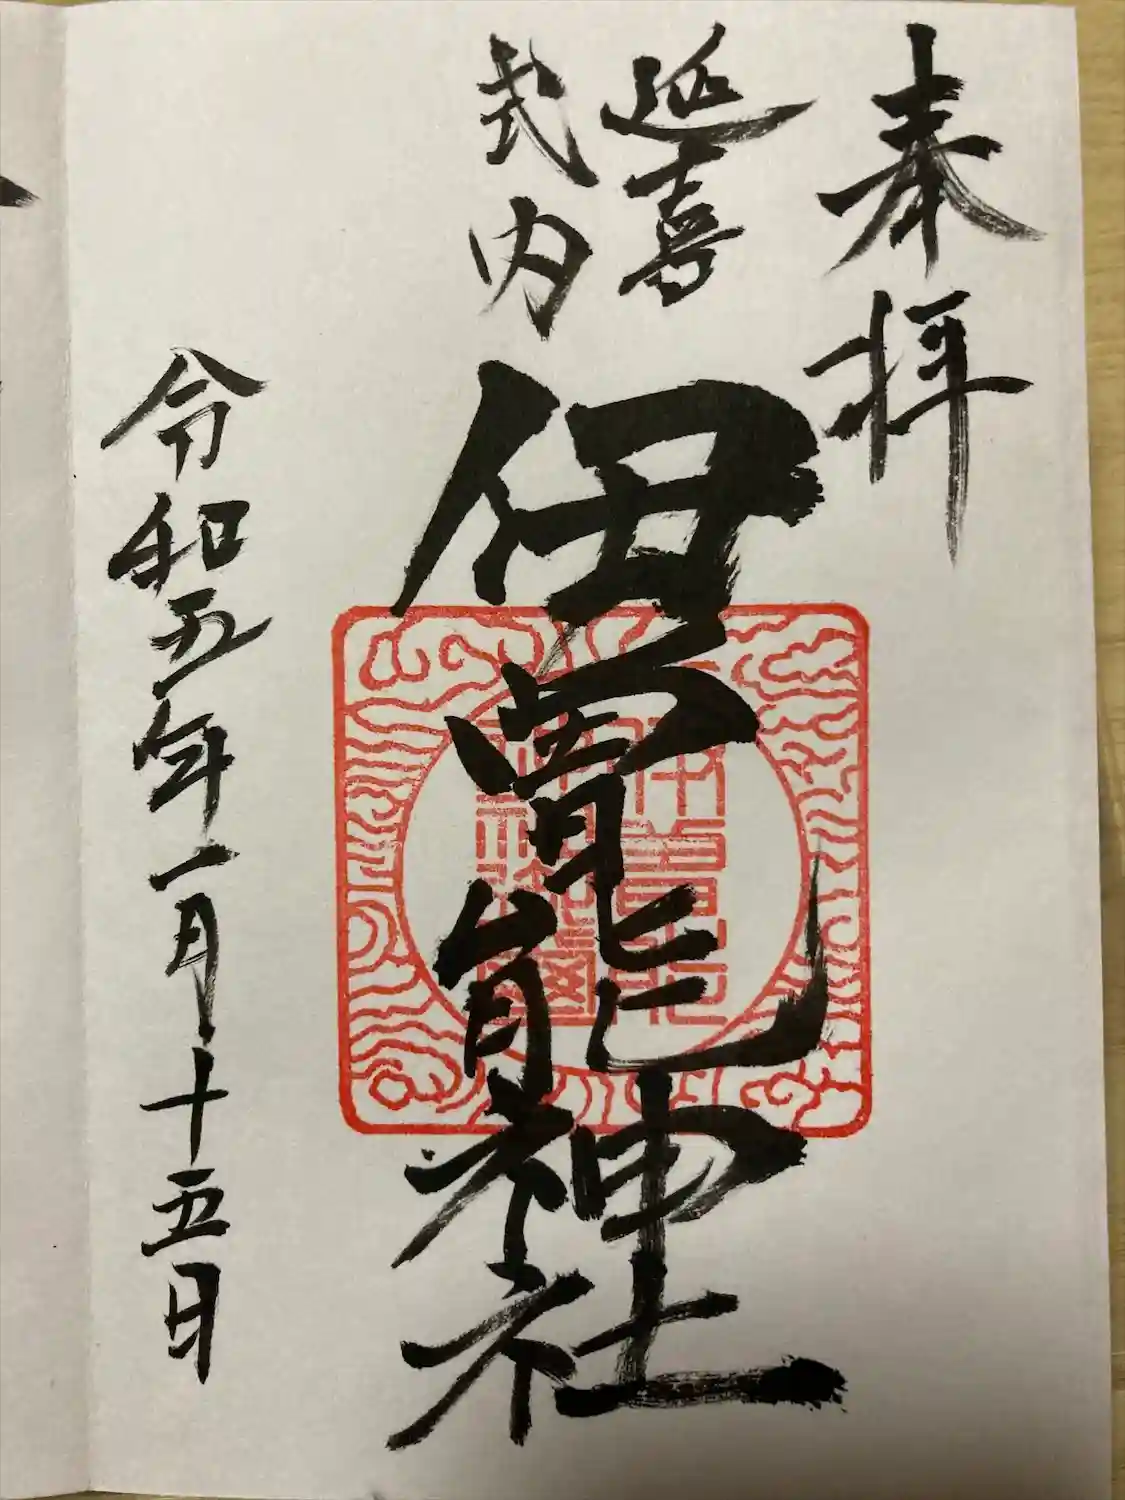 奉拝
延喜
式内
伊曾能神社
令和五年一月十五日